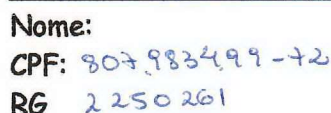 Nome:
CPF: 807.983499-72
RG 2250261